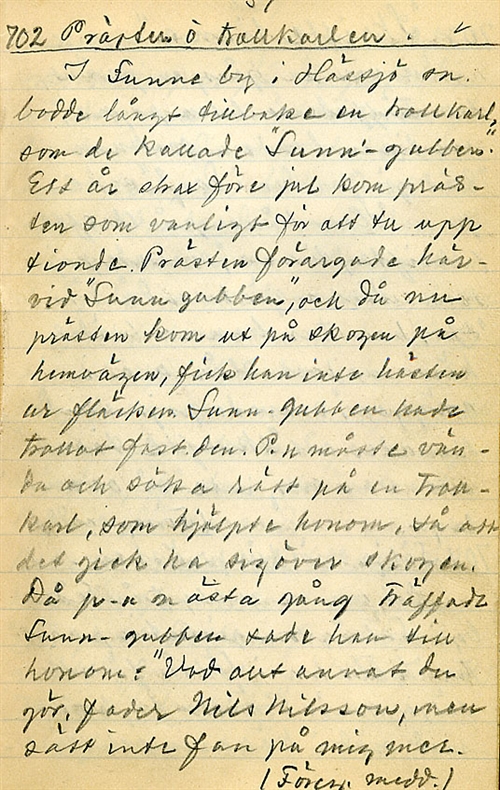 702 Prästen o trollkarlen.
I Sunne by i Hässjö sn.
bodde långt tillbaka en trollkarl,
som de kallade "Sunn'-gubben".
Ett år strax före jul kom präs-
ten som vanligt för att ta upp
tionde. Prästen förargade här-
vid "Sunn gubben", och då nu
prästen kom ut på skogen på
hemvägen, fick han inte hästen
ur fläcken. Sunn-gubben hade
trollat fast den. P.n måste vän-
da och söka rätt på en troll-
karl, som hjälpte honom, så att
det gick ta sig över skogen.
Då p-n nästa gång träffade
Sunn-gubben sade han till
honom: "Vad allt annat du
gör, fader Nils Nilsson, men
sätt inte fan på mig mer.
(Föreg. medd.)